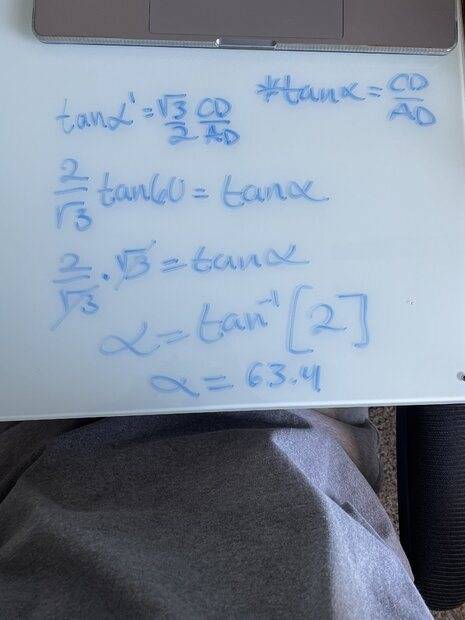 tanα' = √3/2 CD/AD
*tanα = CD/AD
2/√3 tan60 = tanα
2/√3 · √3 = tanα
α = tan⁻¹[2]
α = 63.4